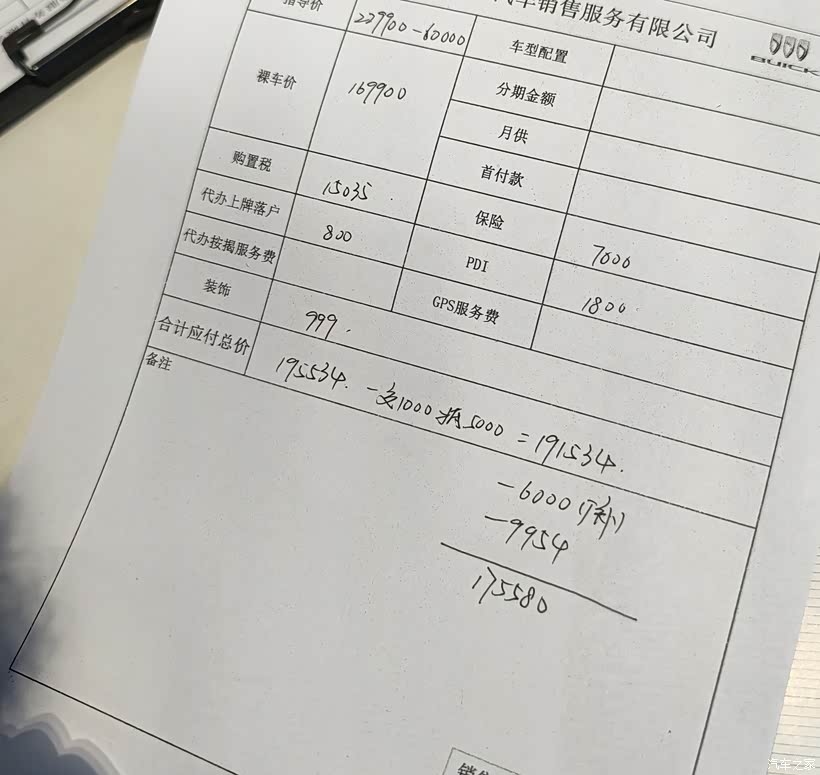 汽车销售服务有限公司
BUICK
指导价 229900-60000 车型配置
裸车价 169900 分期金额
月供
首付款
购置税 15035 保险 7000
代办上牌落户 800 PDI 1800
代办按揭服务费 GPS服务费
装饰 999.
合计应付总价 195534. -交1000抵5000 =191534.
备注
-6000
-9954
175580
汽车之家